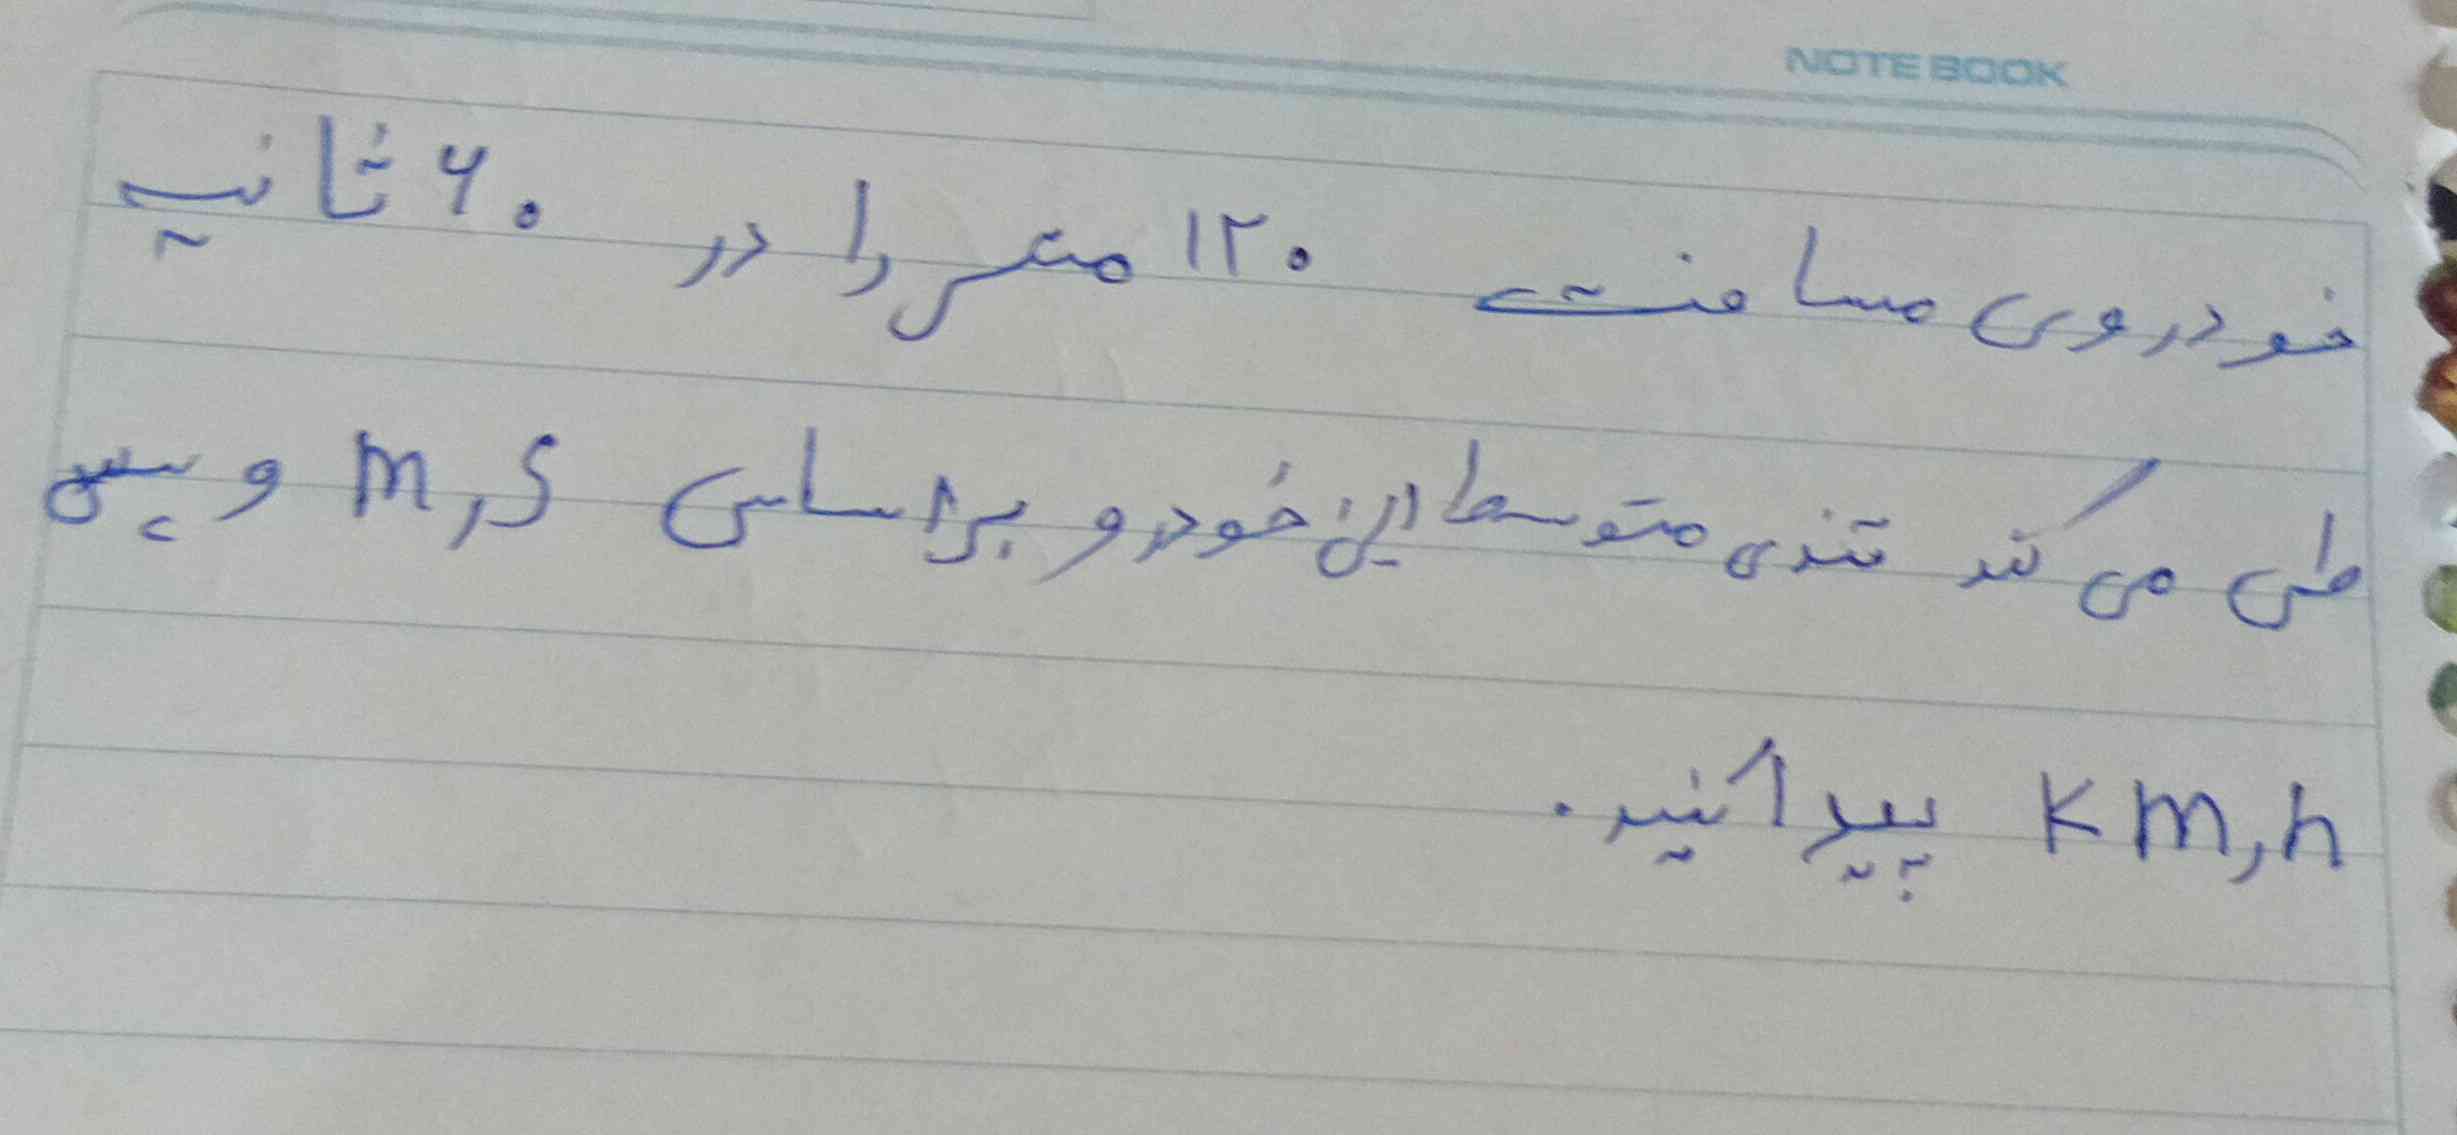 NOTE BOOK
خودروی مسافت ۱۲۰ متر را در ۶۰ ثانیه
طی می کند تندی متوسط این خودرو براساس m,s و سپس
km,h پیدا کنید.